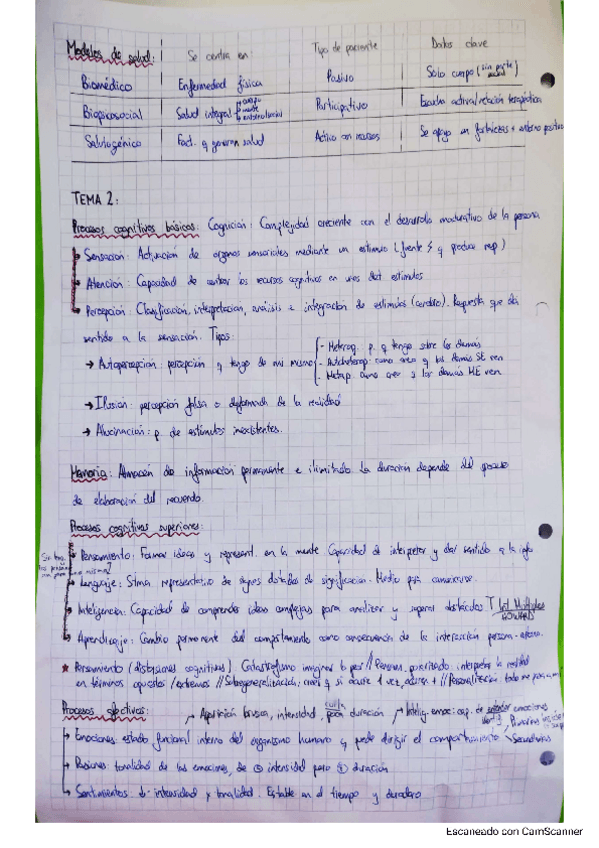 Modelos de salud: Se centra en: Tipo de paciente Datos clave
Biomédico Enfermedad física Pasivo Solo cuerpo (sin parte social)
Biopsicosocial Salud integral cuerpo mente Participativo Escucha activa/relación terapéutica
Salutogénico Fact. q generan salud Activo con recursos Se apoya en fortalezas + entorno positivo
TEMA 2:
Procesos cognitivos básicos: Cognición: Complejidad creciente con el desarrollo madurativo de la persona
Sensación: Activación de órganos sensoriales mediante un estímulo (fuente q produce resp)
Atención: Capacidad de centrar los recursos cognitivos en unos estímulos
Percepción: Clasificación, interpretación, análisis e integración de estímulos (cerebro). Respuesta que da
sentido a la sensación. Tipos:
→ Autopercepción: percepción q tengo de mí mismo
- Heterop. p. q tengo sobre los demás
- como creo q los demás SE ven
- Metap. como creo q los demás ME ven
→ Ilusión: percepción falsa o deformada de la realidad
→ Alucinación: p. de estímulos inexistentes.
Memoria: Almacén de información permanente e ilimitado. La duración depende del proceso
de elaboración del recuerdo.
Procesos cognitivos superiores:
Pensamiento: Formar ideas y represent. en la mente. Capacidad de interpretar y dar sentido a la info
Lenguaje: Stma representativo de signos dotados de significación. Medio para comunicarse.
Inteligencia: Capacidad de comprender ideas complejas para analizar y superar obstáculos. T. Int Múltiples
HOWARD
Aprendizaje: Cambio permanente del comportamiento como consecuencia de la interacción persona-entorno.
* Pensamiento (distorsiones cognitivas) Catastrofismo imaginar lo peor // Pensam. polarizado: interpretar la realidad
en términos opuestos/extremos // Sobregeneralización: creer q si ocurre 1 vez, ocurrirá + // Personalización: todo
Procesos afectivos: Aparición brusca, intensidad, corta duración Intelig. emoc: cap. de emociones
Emociones: estado funcional interno del organismo humano q puede dirigir el comportamiento Secundarias
Pasiones: tonalidad de las emociones, de intensidad pero duración
Sentimientos: ↓ intensidad y tonalidad. Estable en el tiempo y duradero
Escaneado con CamScanner